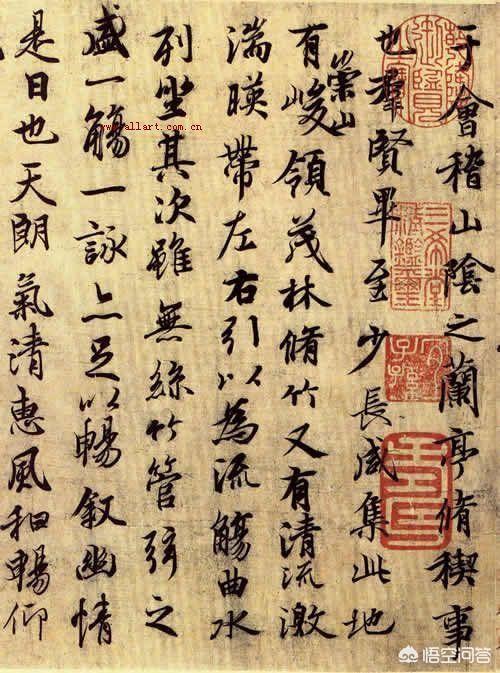 于會稽山陰之蘭亭脩稧事
也羣賢畢至少長咸集此地
有崇山峻領茂林脩竹又有清流激
湍暎帶左右引以為流觴曲水
列坐其次雖無絲竹管弦之
盛一觴一詠亦足以暢叙幽情
是日也天朗氣清惠風和暢仰
三希堂精鑑璽
宜子孫
www.allart.com.cn
悟空问答